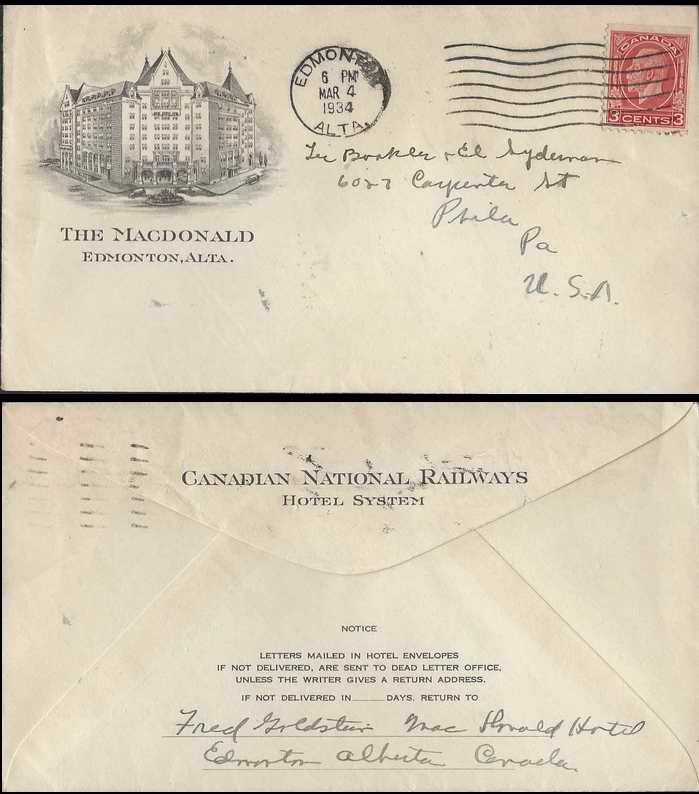 THE MACDONALD
EDMONTON, ALTA.
EDMONTON
6 PM
MAR 4
1934
ALTA.
CANADA
3 CENTS 3
& El Sydeman
6027 Carpenter St
Phila
Pa
U.S.A.
CANADIAN NATIONAL RAILWAYS
HOTEL SYSTEM
NOTICE
LETTERS MAILED IN HOTEL ENVELOPES
IF NOT DELIVERED, ARE SENT TO DEAD LETTER OFFICE,
UNLESS THE WRITER GIVES A RETURN ADDRESS.
IF NOT DELIVERED IN_____DAYS. RETURN TO
Fred Goldstein Mac Donald Hotel
Edmonton Alberta Canada